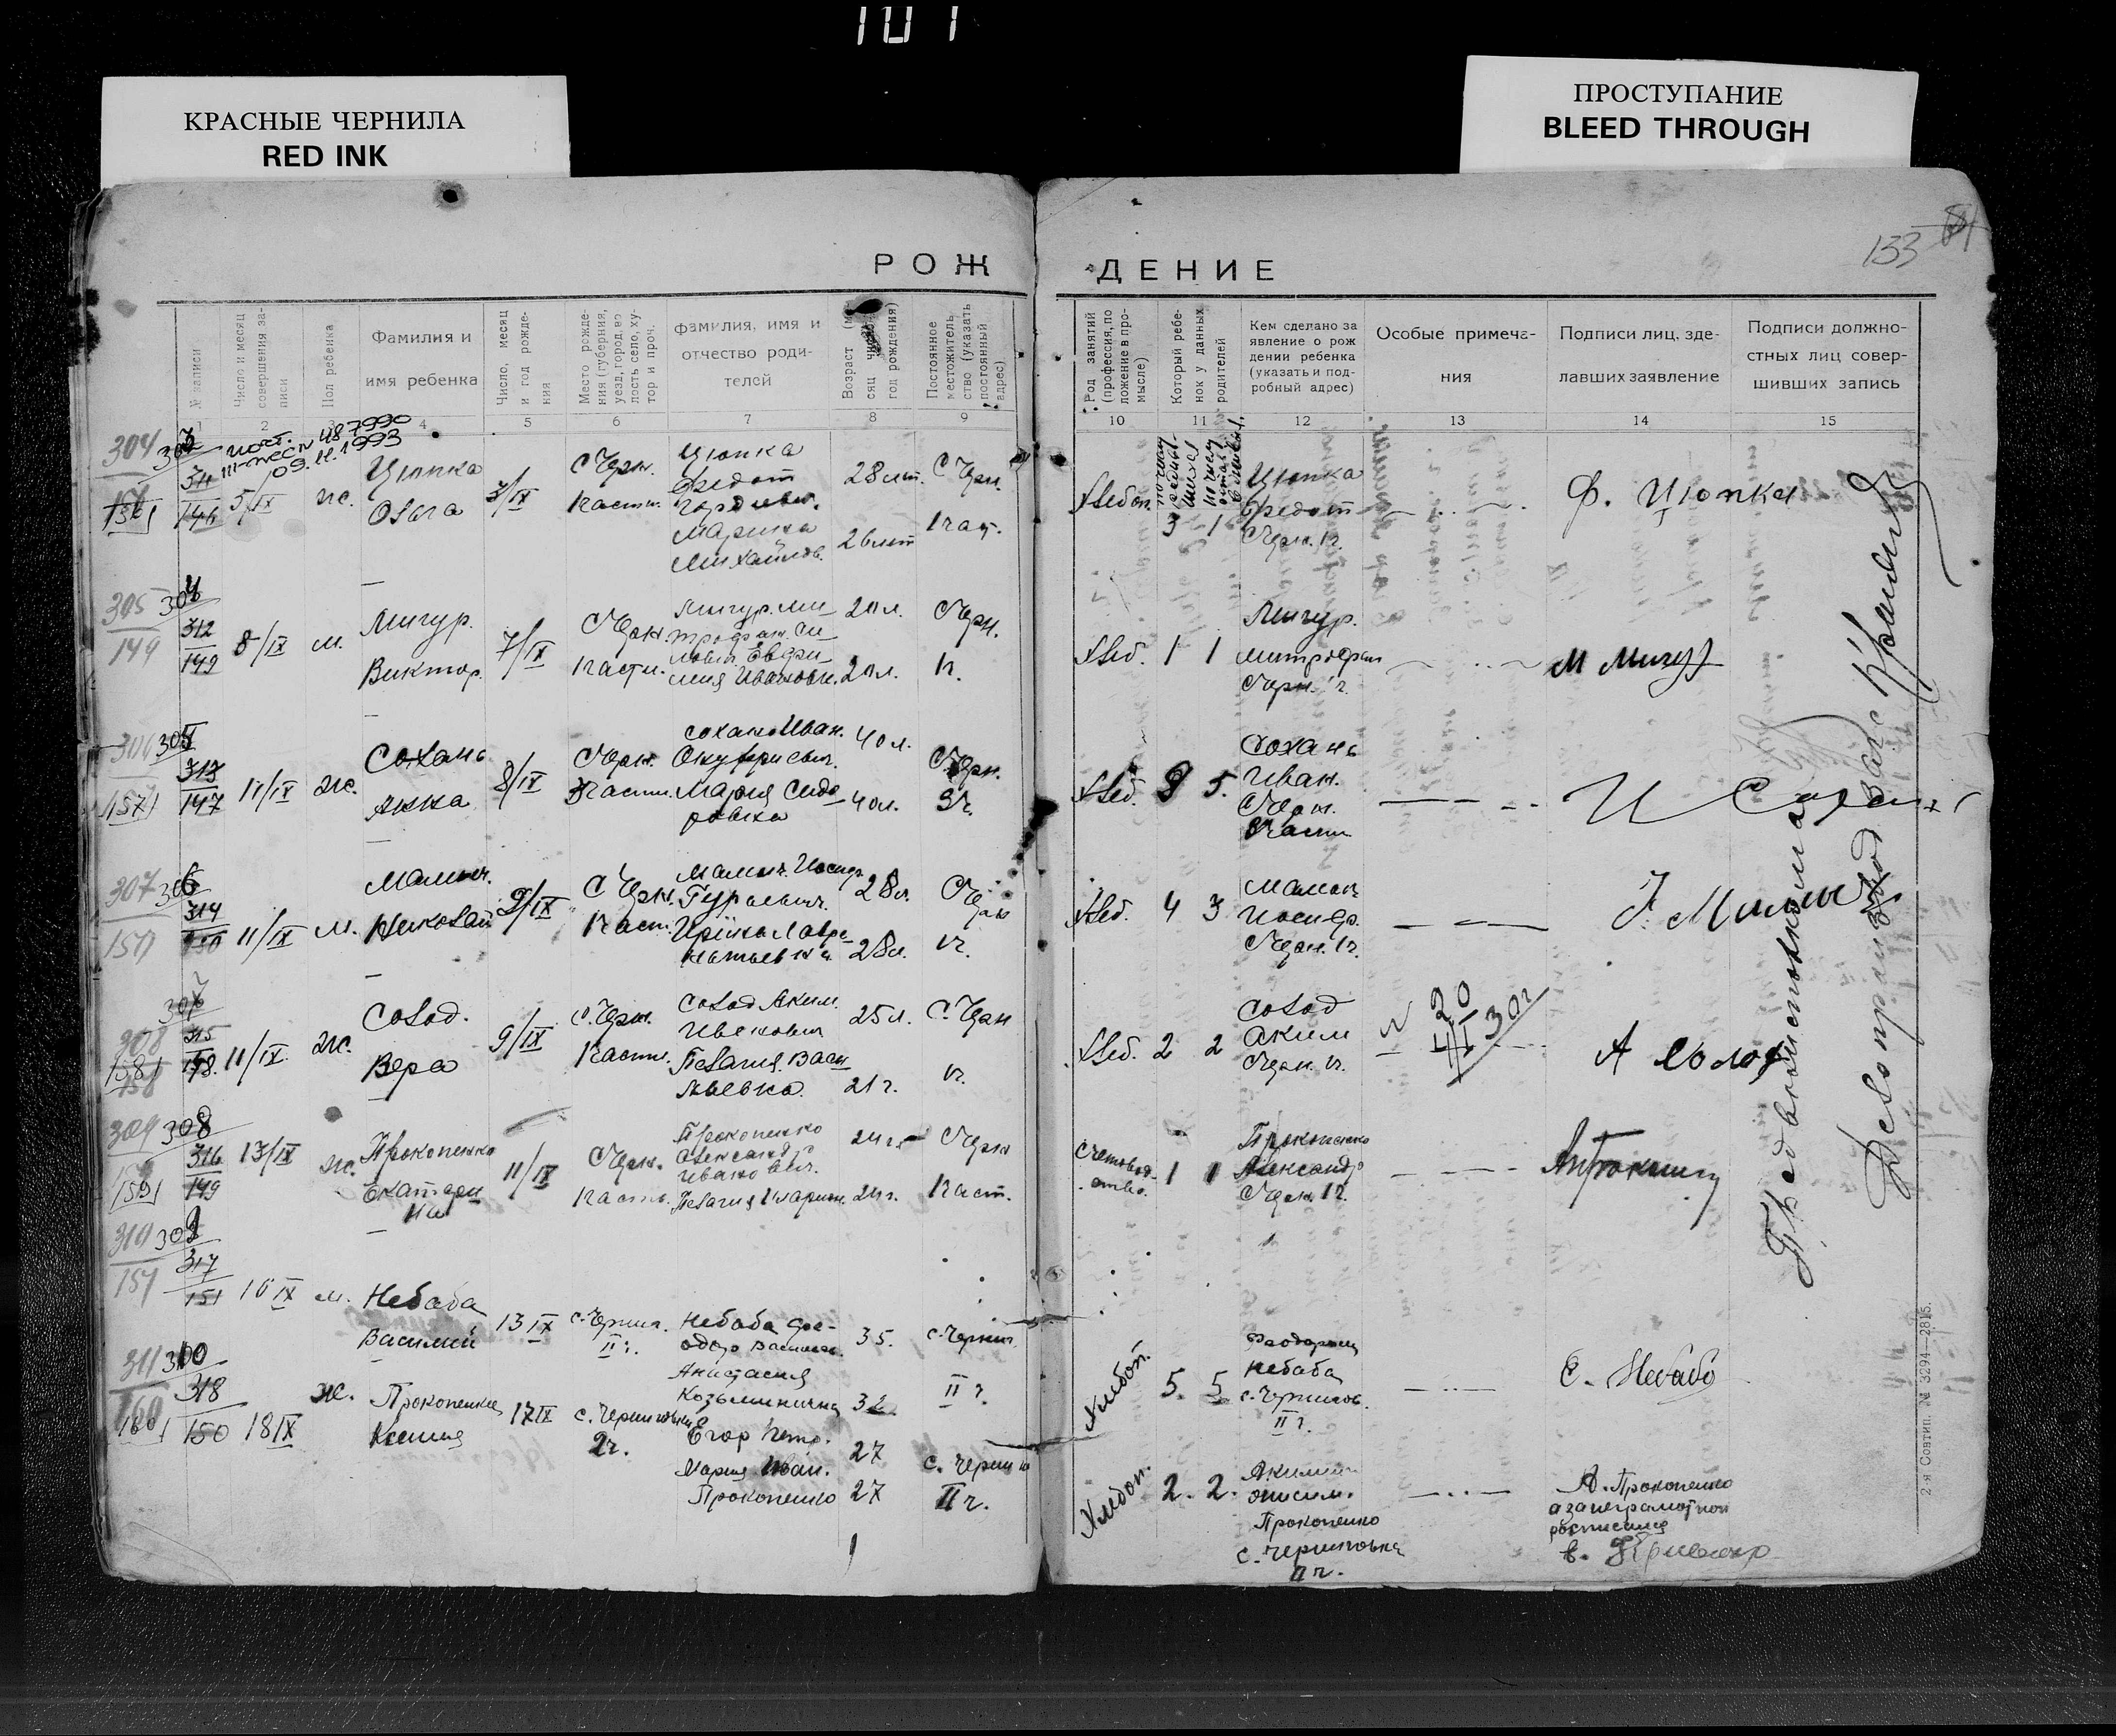 101
КРАСНЫЕ ЧЕРНИЛА
RED INK
ПРОСТУПАНИЕ
BLEED THROUGH
133
РОЖДЕНИЕ
№ записи
Число и месяц совершения записи
Пол ребенка
Фамилия и
имя ребенка
Число, месяц и год рождения
Место рожде-
ния (губерния,
уезд, город, во
лость село, ху-
тор и проч.
фамилия, имя и
отчество роди-
телей
Возраст
Постоянное
местожитель
ство (указать
постоянный
адрес)
Род занятий
(профессия, по
ложение в про-
мысле)
Который ребе-
нок у данных
родителей
Кем сделано за
явление о рож
дении ребенка
(указать и под-
робный адрес)
Особые примеча-
ния
Подписи лиц, зде-
лавших заявление
Подписи должно-
стных лиц совер-
шивших запись
1 2 3 4 5 6 7 8 9 10 11 12 13 14 15
304
487990
09.11.1993
311
146
5/IX
ж.
Цюпка
Ольга
3/IX
С Черн.
1 части.
Цюпка
Федот
Марина
Михайлов.
28 лет.
26 лет
С Черн.
1 част.
Хлебоп.
3 1
Цюпка
Федот
Черн. 1 ч.
Ф. Цюпка
305
149
312
149
8/IX
м.
Мигур.
Виктор.
7/IX
С Черн.
1 части.
Мигур. Ми
трофан. Си
Ивановн.
20 л.
20 л.
С Черн.
1 ч.
Хлеб.
1 1
Мигур.
митрофан
Черн. 1 ч.
М Мигур
306
157
313
147
11/IX
ж.
Сохань
Анна
8/IX
С Черн.
3 части.
Сохань Иван.
Онуфриевич.
Мария Сидо
ровна
40 л.
40 л.
С Черн.
3 ч.
Хлеб.
9 5.
Сохань
Иван.
С Черн.
3 части
И Сохань
307
150
314
150
11/IX
м.
Николай
9/IX
С Черн.
1 част.
Гурьевич.
28 л.
28 л.
С Черн
1 ч.
Хлеб.
4 3
Черн. 1 ч.
308
158
315
148.
11/IX.
ж.
Солод.
Вера
9/IX
С. Черн.
1 части.
Солод Аким.
Иванович
Пелагия Васи
льевна.
25 л.
21 г.
С. Черн
1 ч.
Хлеб.
2 2
Солод
Аким
Черн. 1 ч.
А Солод
309
308
159
316
149
13/IX
ж.
Прокопенко
Екатери
на
11/IX
С Черн.
1 часть.
Прокопенко
Александр
Иванович.
Пелагия Иларион.
24 г.
24 г.
С Черн
1 част.
Счетовод
ство.
1 1
Прокопенко
Александр
С Черн. 1 ч.
310
309
317
151
16 IX
м.
Небаба
Василий
13 IX
с. Черниг.
II ч.
Небаба Фе-
одор Василь.
Анастасия
Козьминична
35.
32.
с. Черниг.
II ч.
Хлебоп.
5. 5
Небаба
с. Чернигов.
II ч.
Небаба
311
310
160
318
150
18 IX
ж.
Прокопенко
Ксения
17 IX
с. Черниговка
2 ч.
Егор Петр.
Мария Иван.
Прокопенко
27
27
с. Черниг
II ч.
Хлебоп.
2. 2.
Акилин
онисим.
Прокопенко
с. Черниговка
II ч.
А. Прокопенко
а за неграмотной
росписался
Делопроизвод Загс
2-я Совтип. № 3294—2815.